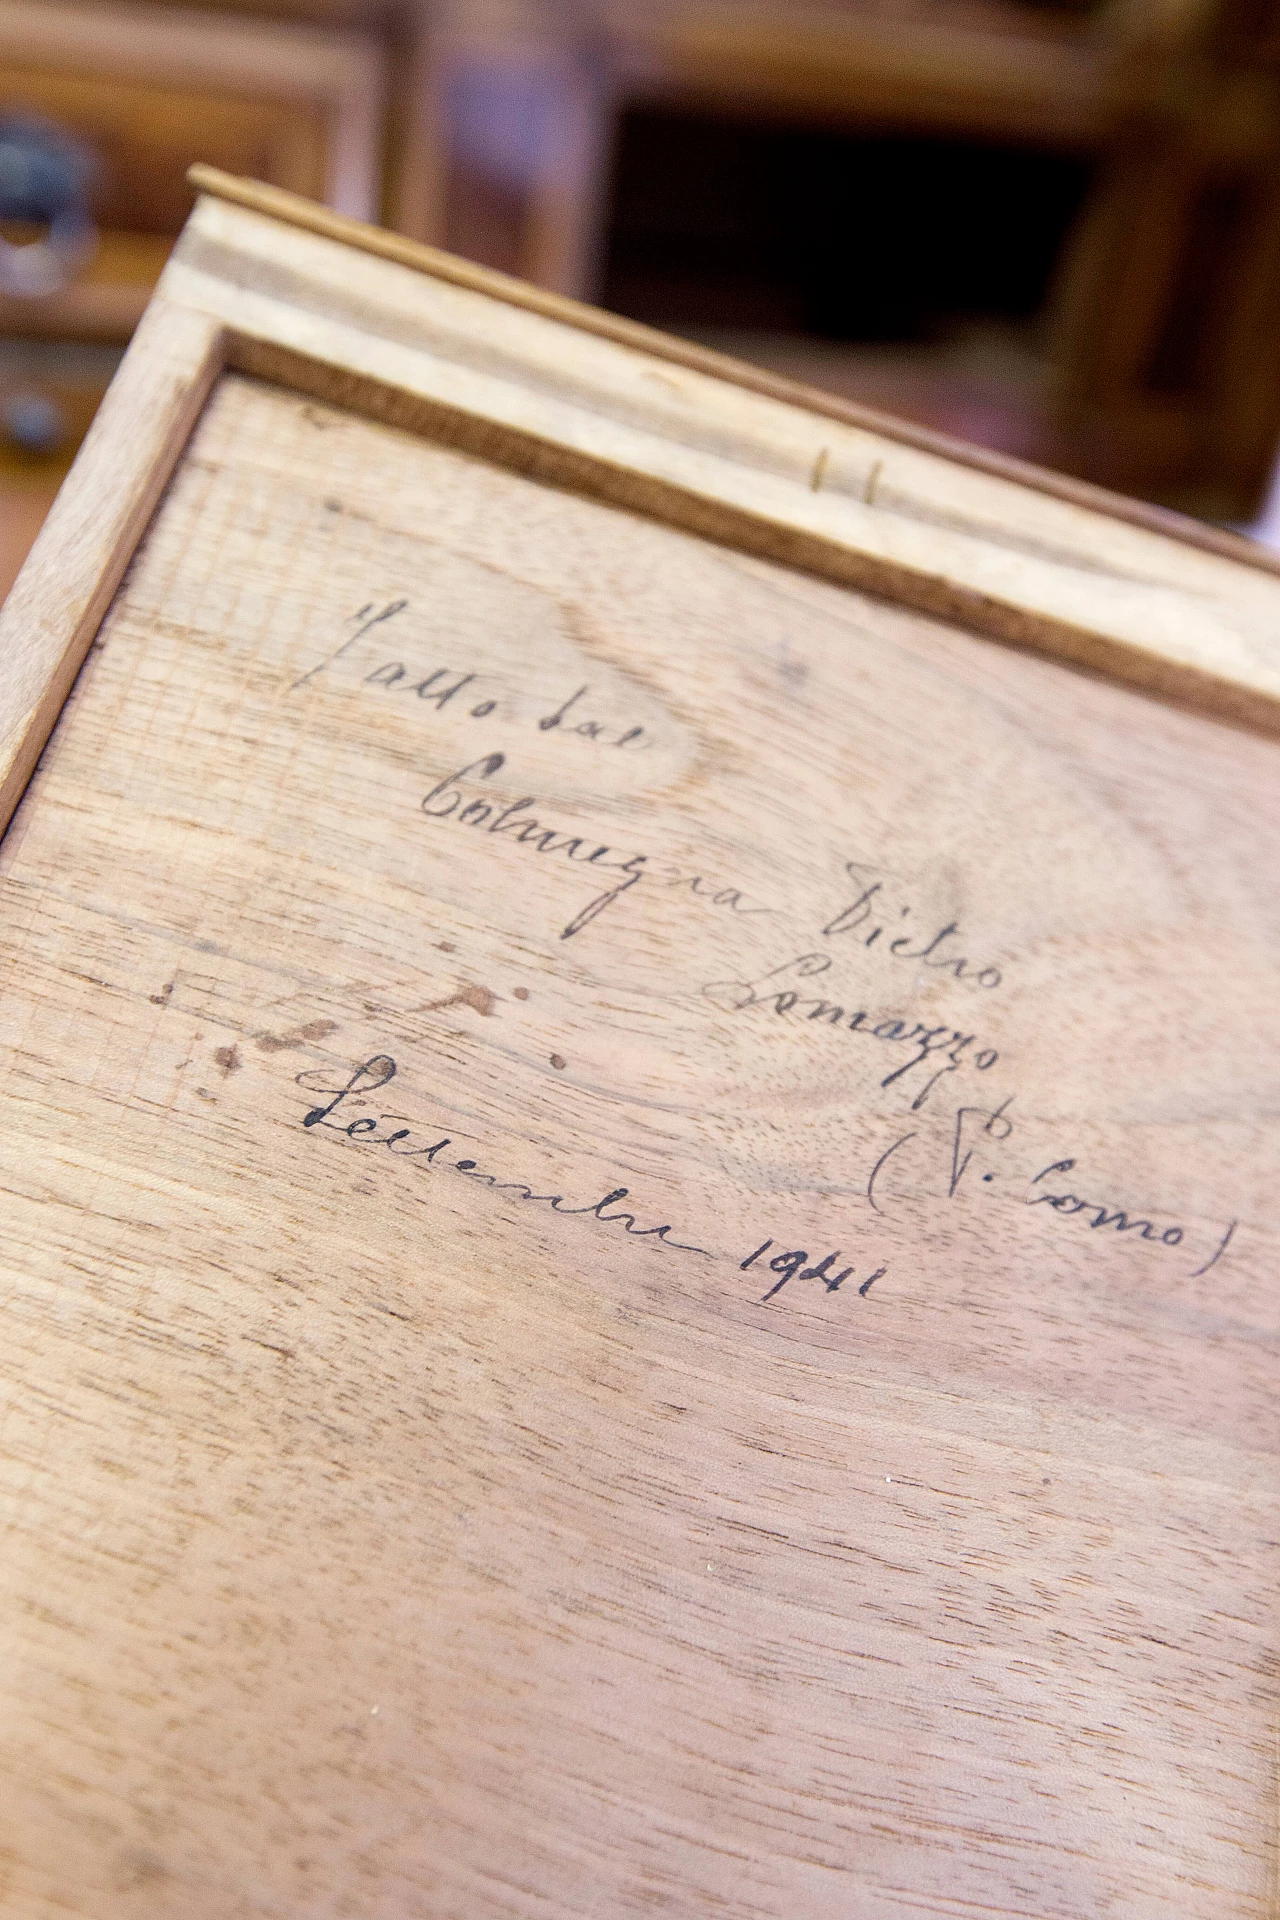 Fatto dal
Colmegna Pietro
Lomazzo
(P. Como)
Settembre 1941